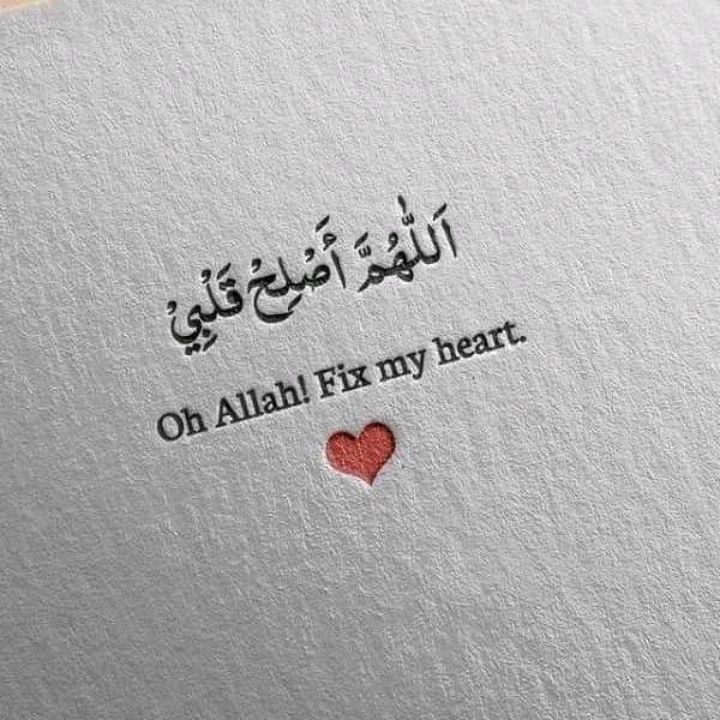 اَللّٰهُمَّ أَصْلِحْ قَلْبِيْ
Oh Allah! Fix my heart.